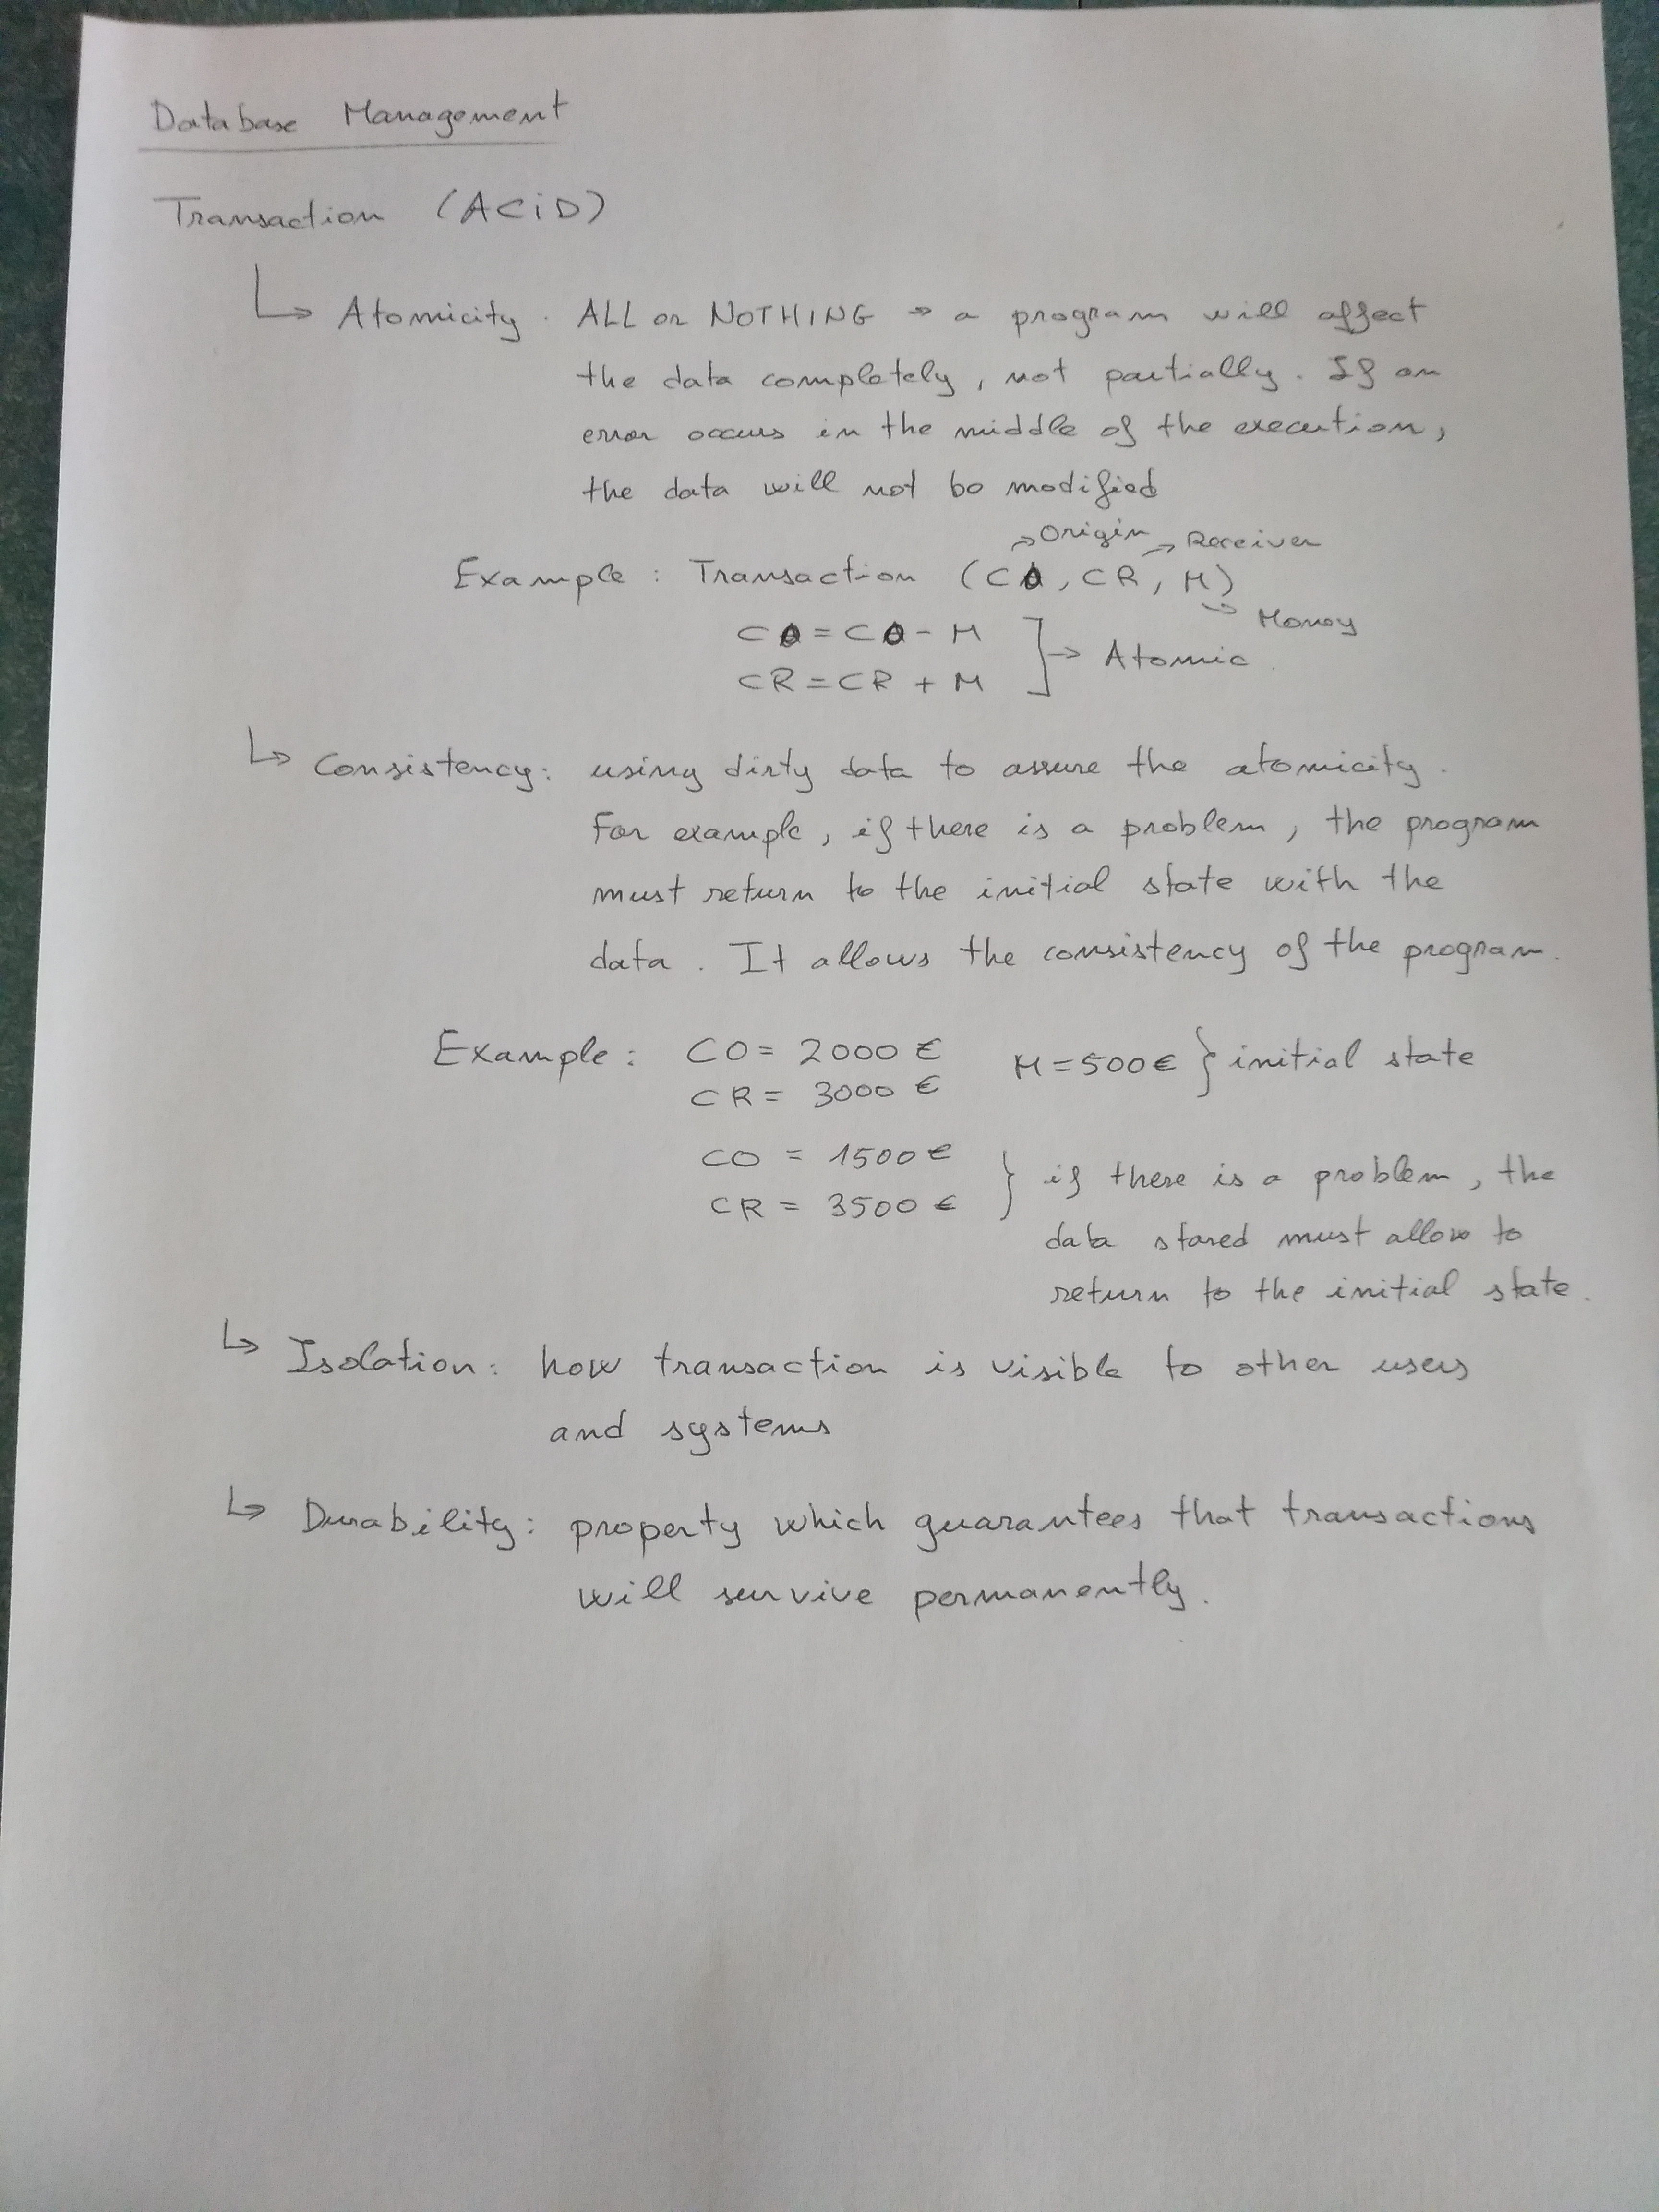 Database Management
Transaction (ACiD)
↳ Atomicity. ALL or NOTHING → a program will affect
the data completely, not partially. If an
error occurs in the middle of the execution,
the data will not be modified
→ Origin → Receiver
Example: Transaction (CO, CR, M)
→ Money
CO = CO - M
CR = CR + M ] → Atomic.
↳ Consistency: using dirty data to assure the atomicity.
For example, if there is a problem, the program
must return to the initial state with the
data. It allows the consistency of the program.
Example: CO = 2000 € M = 500 € } initial state
CR = 3000 €
CO = 1500 €
CR = 3500 € } if there is a problem, the
data stored must allow to
return to the initial state.
↳ Isolation: how transaction is visible to other users
and systems
↳ Durability: property which guarantees that transactions
will survive permanently.